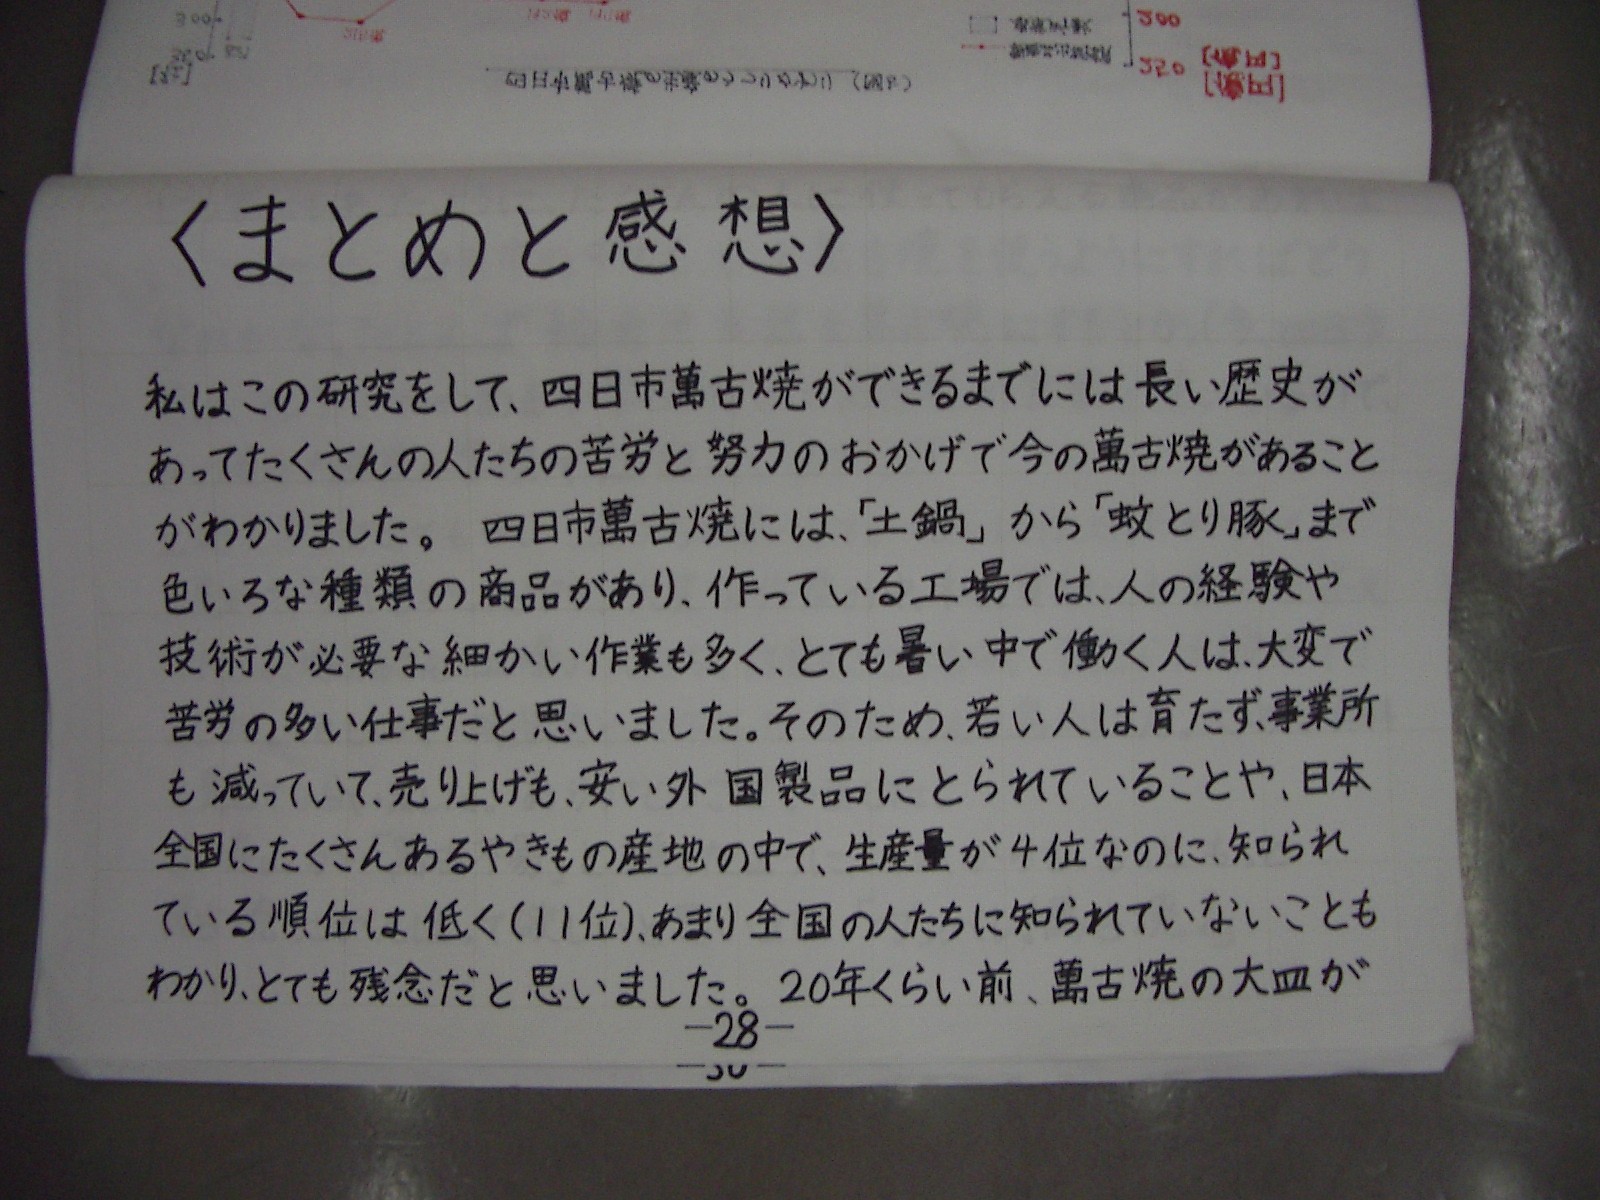 〈まとめと感想〉
私はこの研究をして、四日市萬古焼ができるまでには長い歴史が
あってたくさんの人たちの苦労と努力のおかげで今の萬古焼があること
がわかりました。 四日市萬古焼には、「土鍋」から「蚊とり豚」まで
色いろな種類の商品があり、作っている工場では、人の経験や
技術が必要な細かい作業も多く、とても暑い中で働く人は、大変で
苦労の多い仕事だと思いました。そのため、若い人は育たず、事業所
も減っていて、売り上げも、安い外国製品にとられていることや、日本
全国にたくさんあるやきもの産地の中で、生産量が4位なのに、知られ
ている順位は低く(11位)、あまり全国の人たちに知られていないことも
わかり、とても残念だと思いました。20年くらい前、萬古焼の大皿が
-28-
250
200